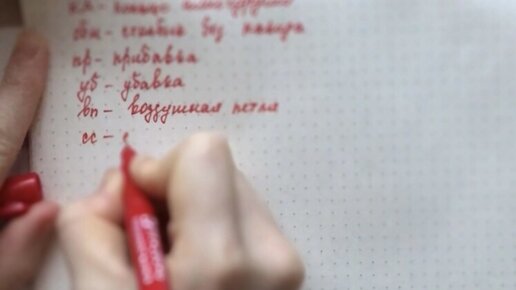 сбн - столбик без накида
пр - прибавка
уб - убавка
вп - воздушная петля
сс - с